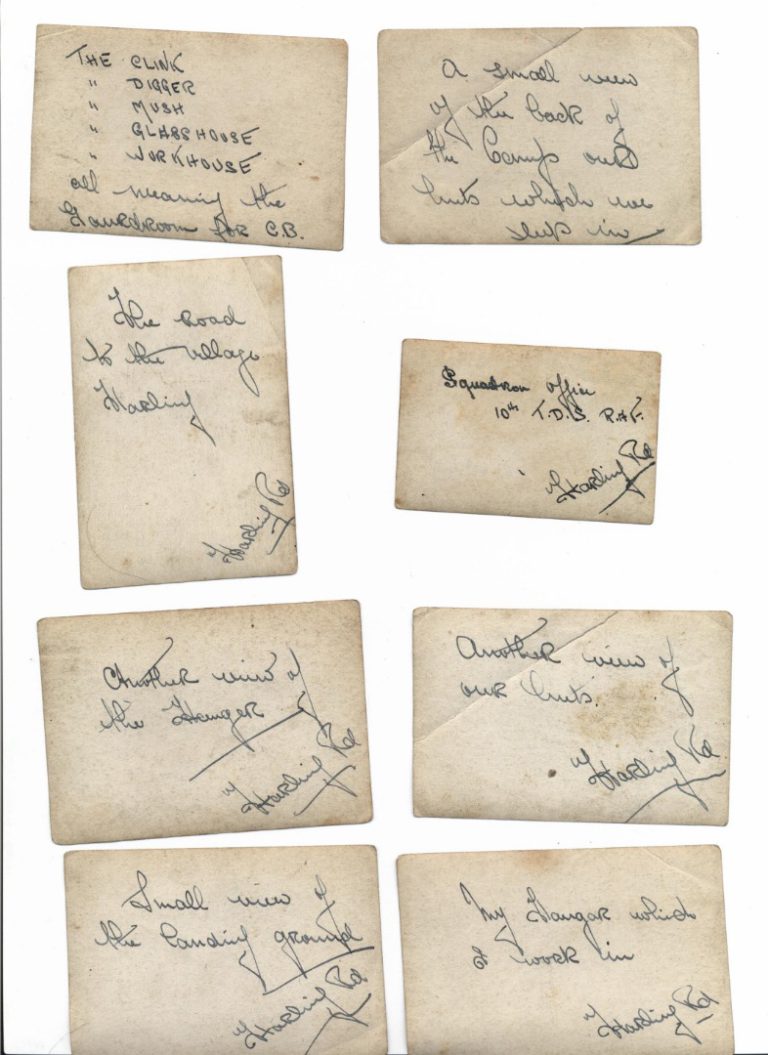 THE CLINK
" DIGGER
" MUSH
" GLASSHOUSE
" WORKHOUSE
all meaning the
Gaurdroom for C.B.
A small view
of the back of
the Camp our
huts which we
slept in
The road
to the village
Harling
Harling Rd
Squadron office
10th T.D.S. R.A.F.
Harling Rd
Another view of
the Hanger
Harling Rd
Another view of
our huts.
Harling Rd
Small view of
the landing ground
Harling Rd
My Hangar which
I work in
Harling Rd